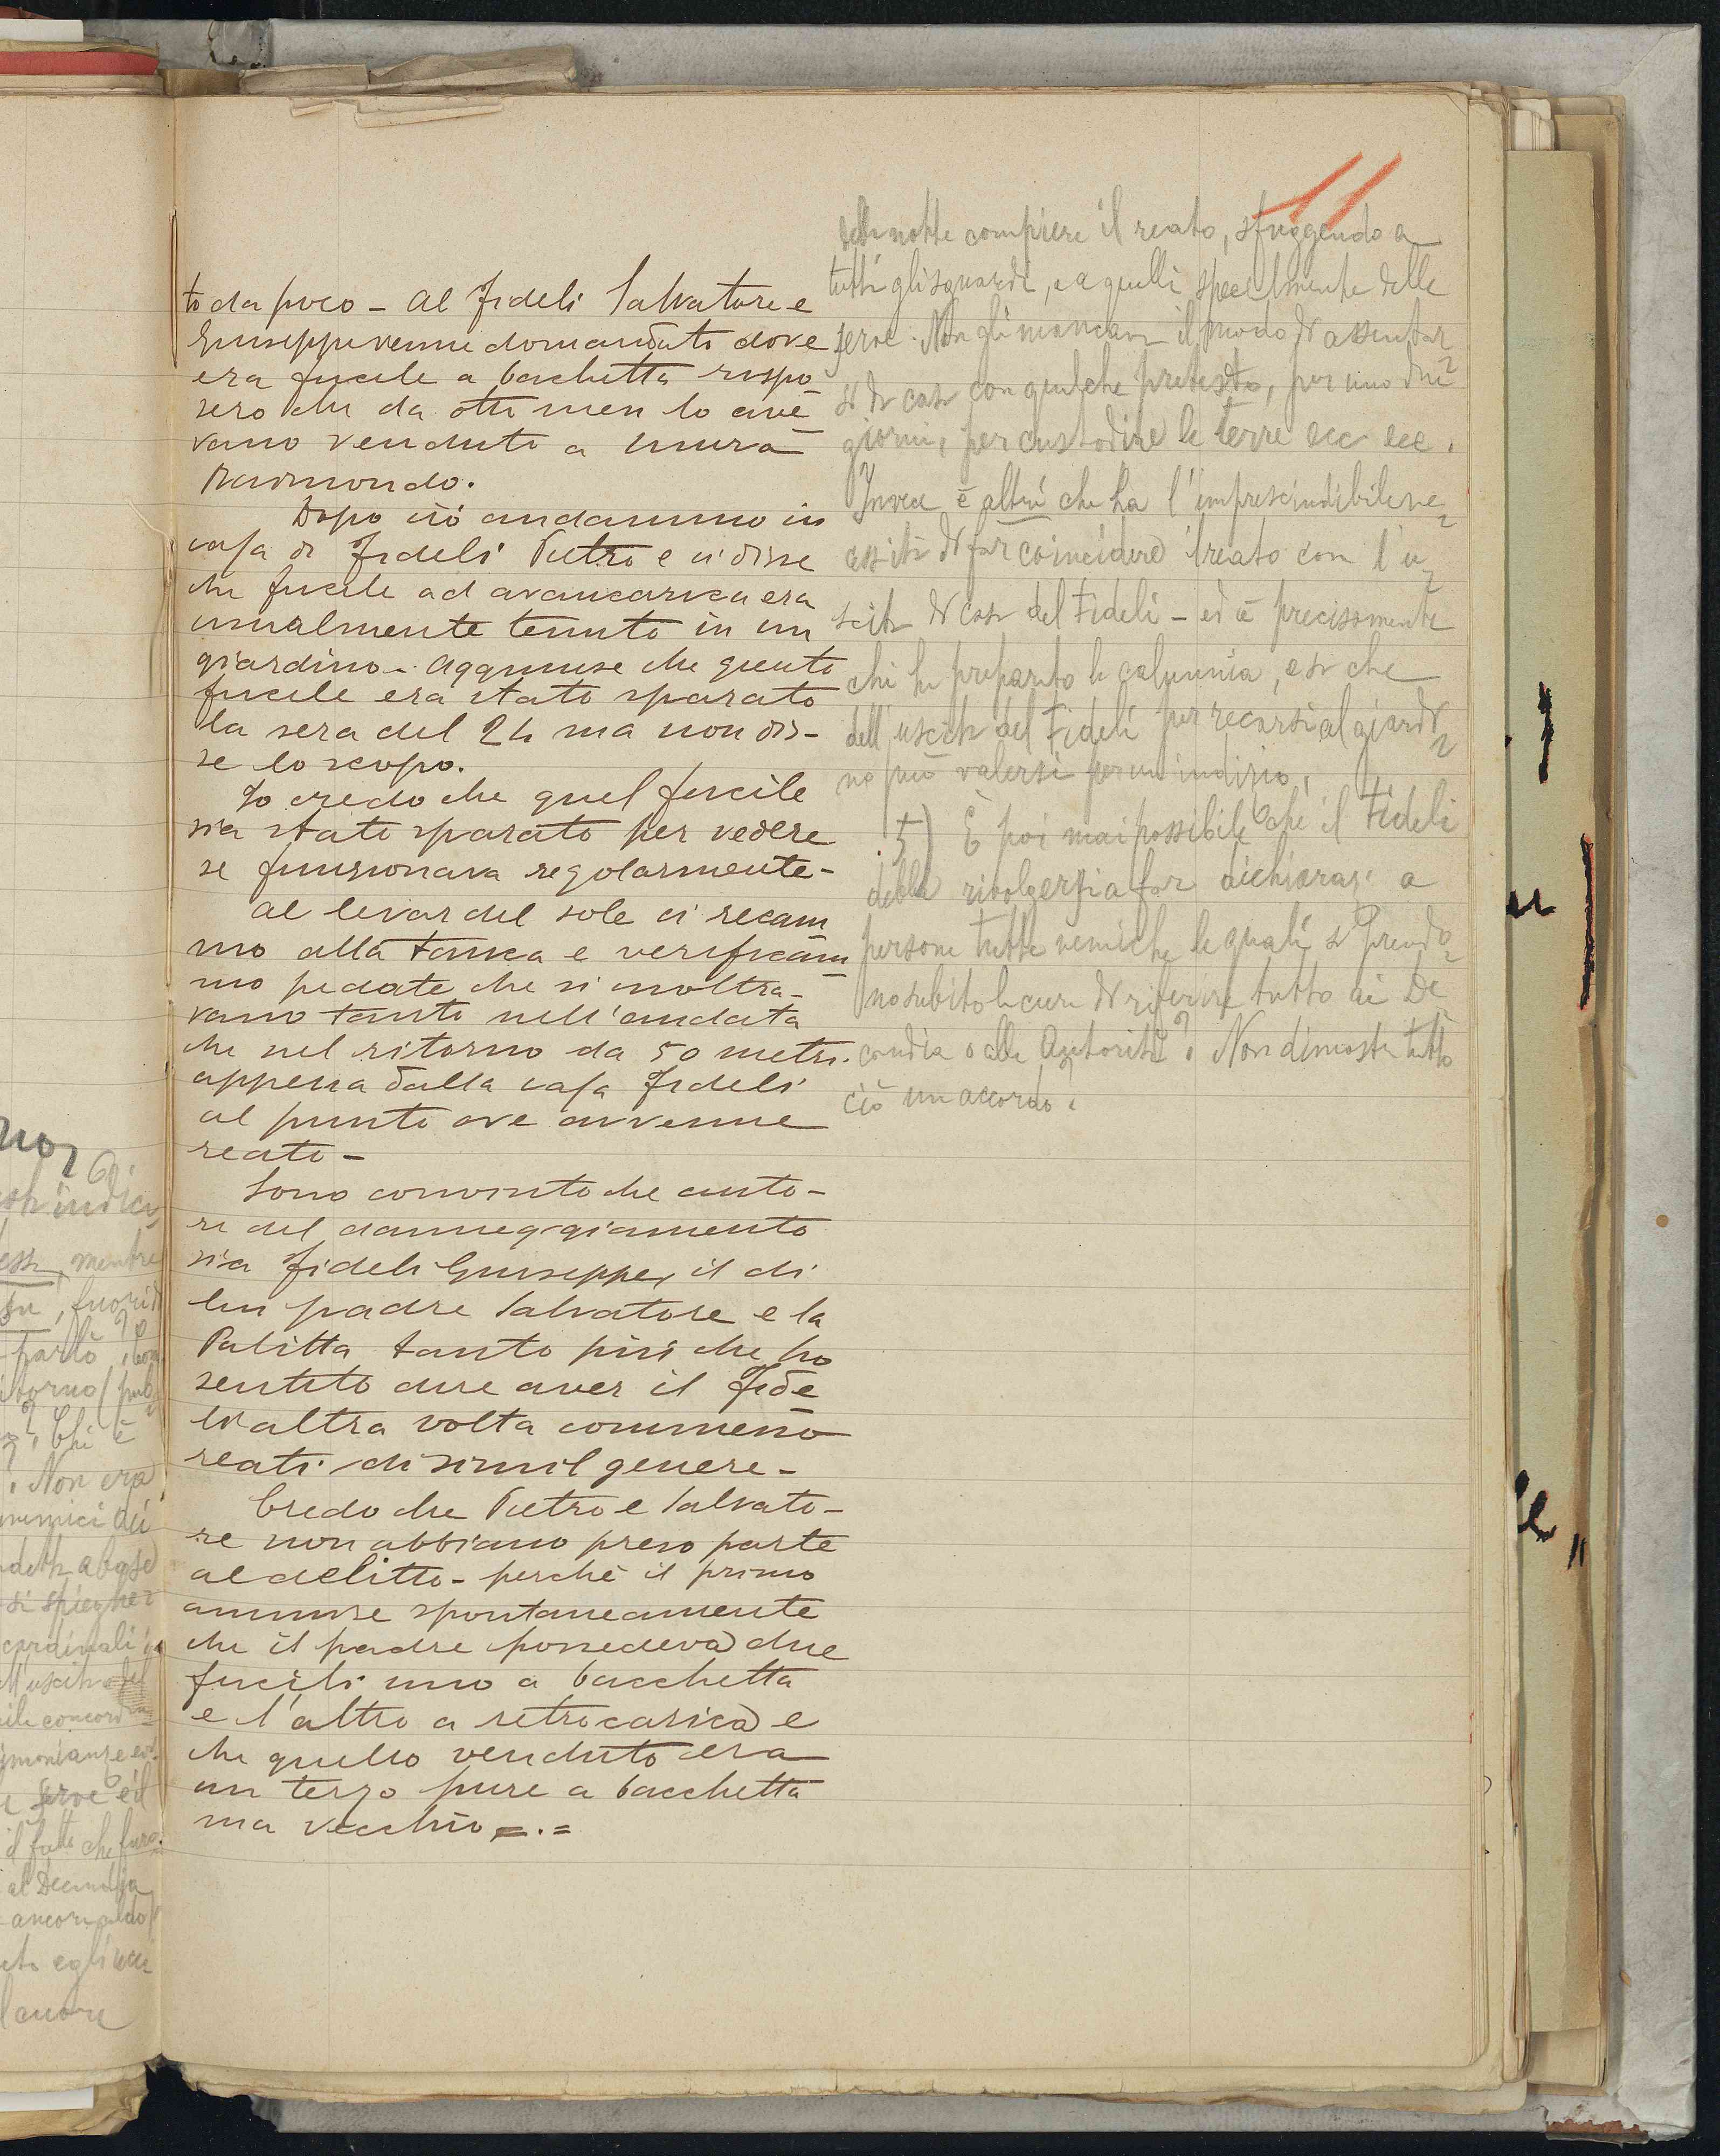 11
to da poco - al Fideli Salvatore e
Giuseppe venne domandato dove
era fucile a bacchetta rispo
sero che da otto mesi lo ave
vano venduto a Mura
Raimondo.
Dopo ciò andammo in
casa di Fideli Pietro e ci disse
che fucile ad avancarica era
usualmente tenuto in un
giardino - aggiunse che questo
fucile era stato sparato
la sera del 24 ma non dis-
se lo scopo.
Io credo che quel fucile
sia stato sparato per vedere
se funzionava regolarmente -
al levar del sole ci recam
mo alla tanca e verificam
mo pedate che si inoltra-
vano tanto nell'andata
che nel ritorno da 50 metri
appena dalla casa Fideli
al punto ove avvenne
reato -
Sono convinto che auto-
re del danneggiamento
sia Fideli Giuseppe, il di
lui padre Salvatore e la
Palitta tanto più che ho
sentito dire aver il Fide
li altra volta commesso
reati di simil genere -
Credo che Pietro e Salvato-
re non abbiano preso parte
al delitto - perchè il primo
ammise spontaneamente
che il padre possedeva due
fucili uno a bacchetta
e l'altro a retrocarica e
che quello venduto era
un terzo pure a bacchetta
ma vecchio =.=
della notte compiere il reato, sfuggendo a
tutti gli sguardi, e a quelli specialmente delle
serve. Non gli mancava il modo di assentar
si di casa con qualche pretesto, per uno o due
giorni, per custodire le terre ecc ecc.
Invece è altri che ha l'imprescindibile ne
cessità di far coincidere il reato con l'u
scita di casa del Fideli - ed è precisamente
chi ha preparato la calunnia, e si che
dell'uscita del Fideli per recarsi al giardi
no può valersi per un indizio.
5) È poi mai possibile che il Fideli
debba rivolgersi a far dichiarazi a
persone tutte nemiche le quali si prendo
no subito la cura di riferire tutto ai De
candia o alle Autorità? Non dimostra tutto
ciò un accordo?